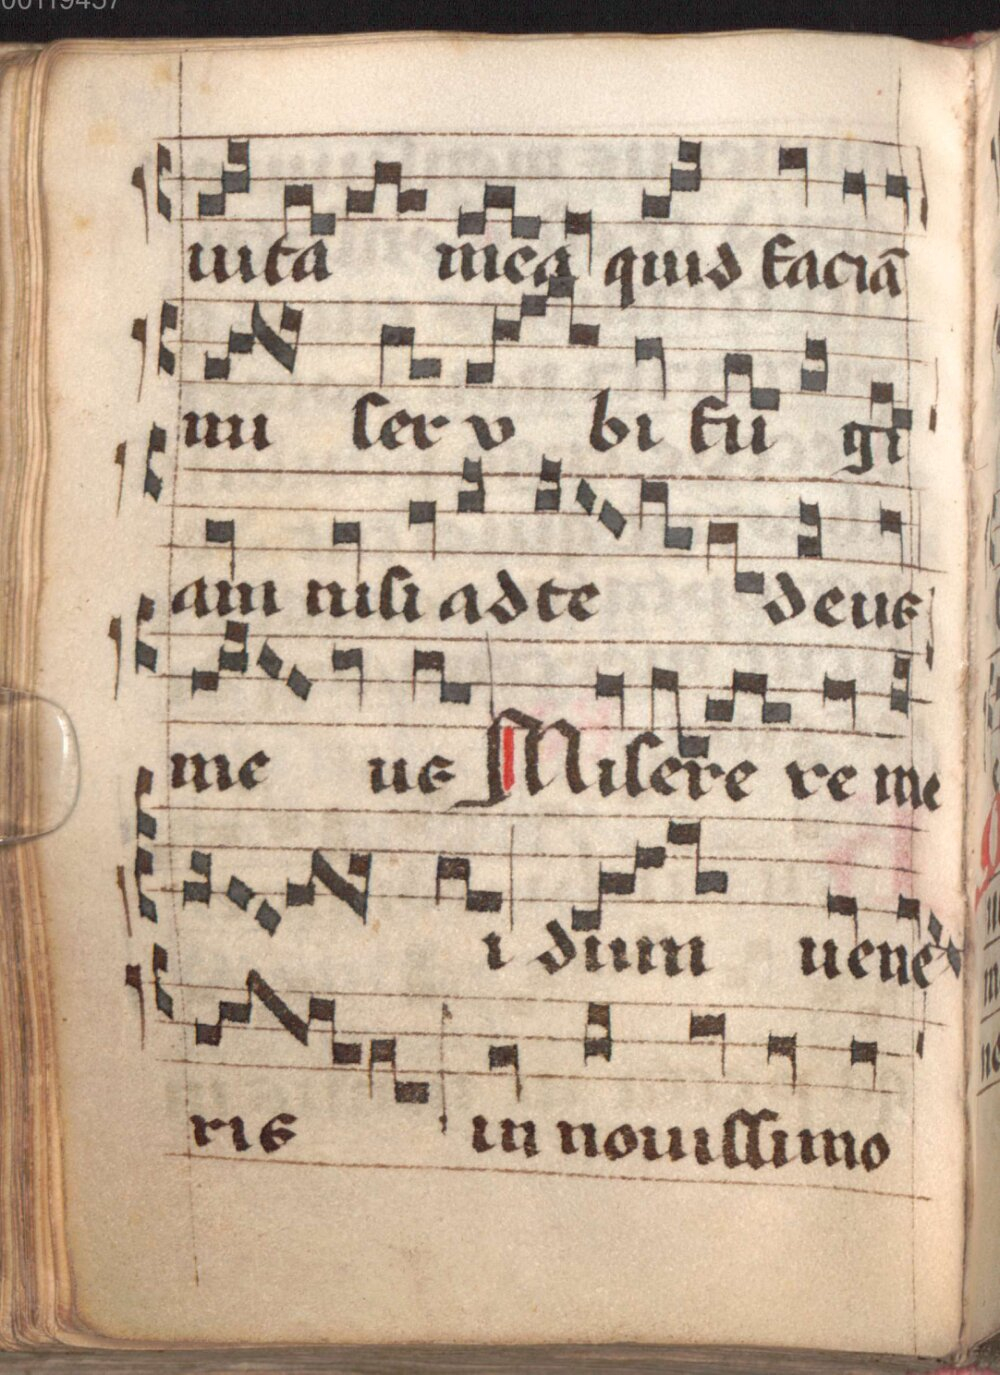 00119457
uita mea quid faciã
mi ser v bi fu gi
am nisi ad te deus
me us Misere re me
i dum uene
ris in nouissimo